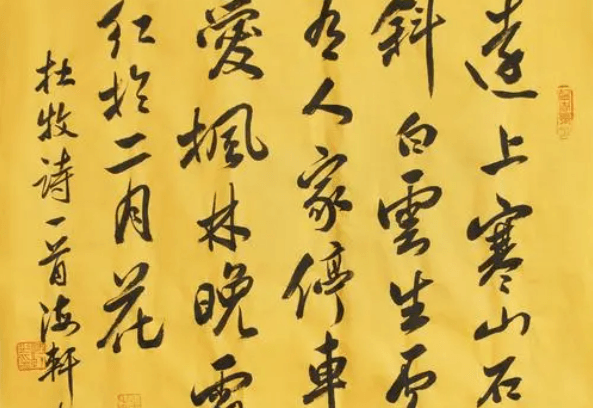 遠上寒山石
斜白雲生處
有人家停車
愛楓林晚霜
紅於二月花
杜牧詩一首海軒